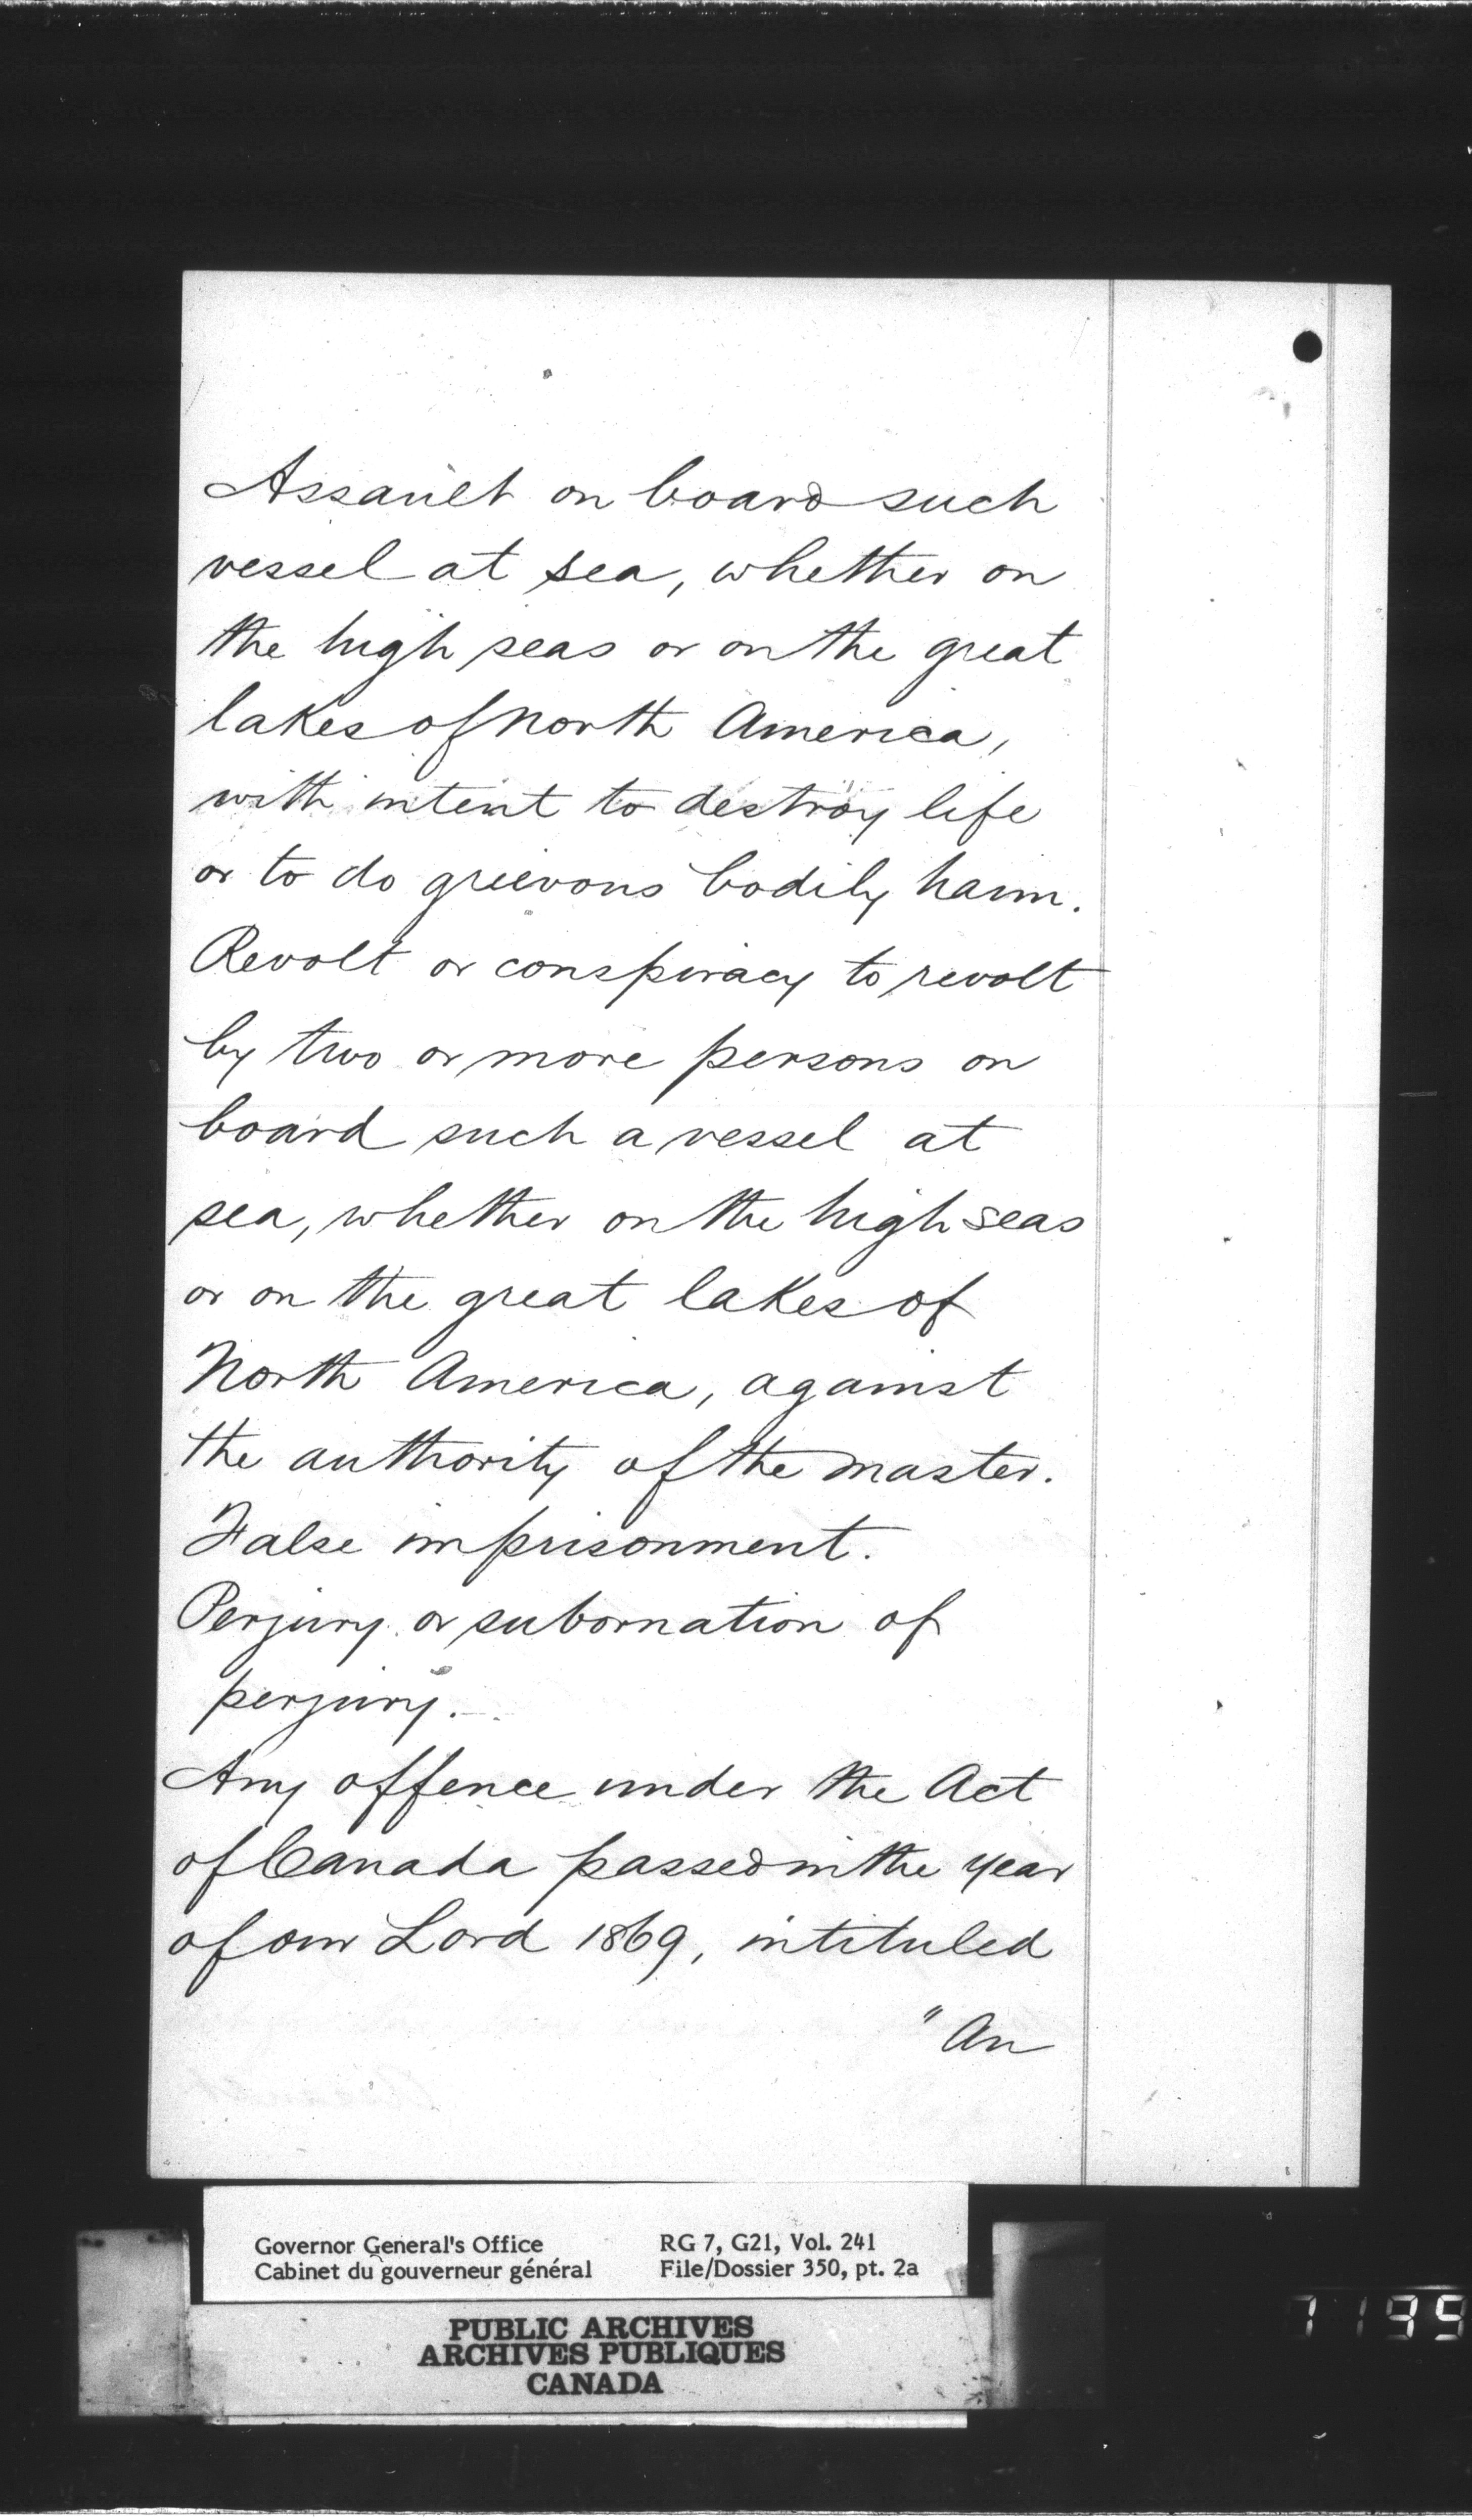 Assault on board such
vessel at sea, whether on
the high seas or on the great
lakes of North America,
with intent to destroy life
or to do grievous bodily harm.
Revolt or conspiracy to revolt
by two or more persons on
board such a vessel at
sea, whether on the high seas
or on the great lakes of
North America, against
the authority of the master.
False imprisonment.
Perjury or subornation of
perjury.
Any offence under the Act
of Canada passed in the year
of our Lord 1869, intituled
"An
Governor General's Office RG 7, G21, Vol. 241
Cabinet du gouverneur général File/Dossier 350, pt. 2a
PUBLIC ARCHIVES
ARCHIVES PUBLIQUES
CANADA
7199